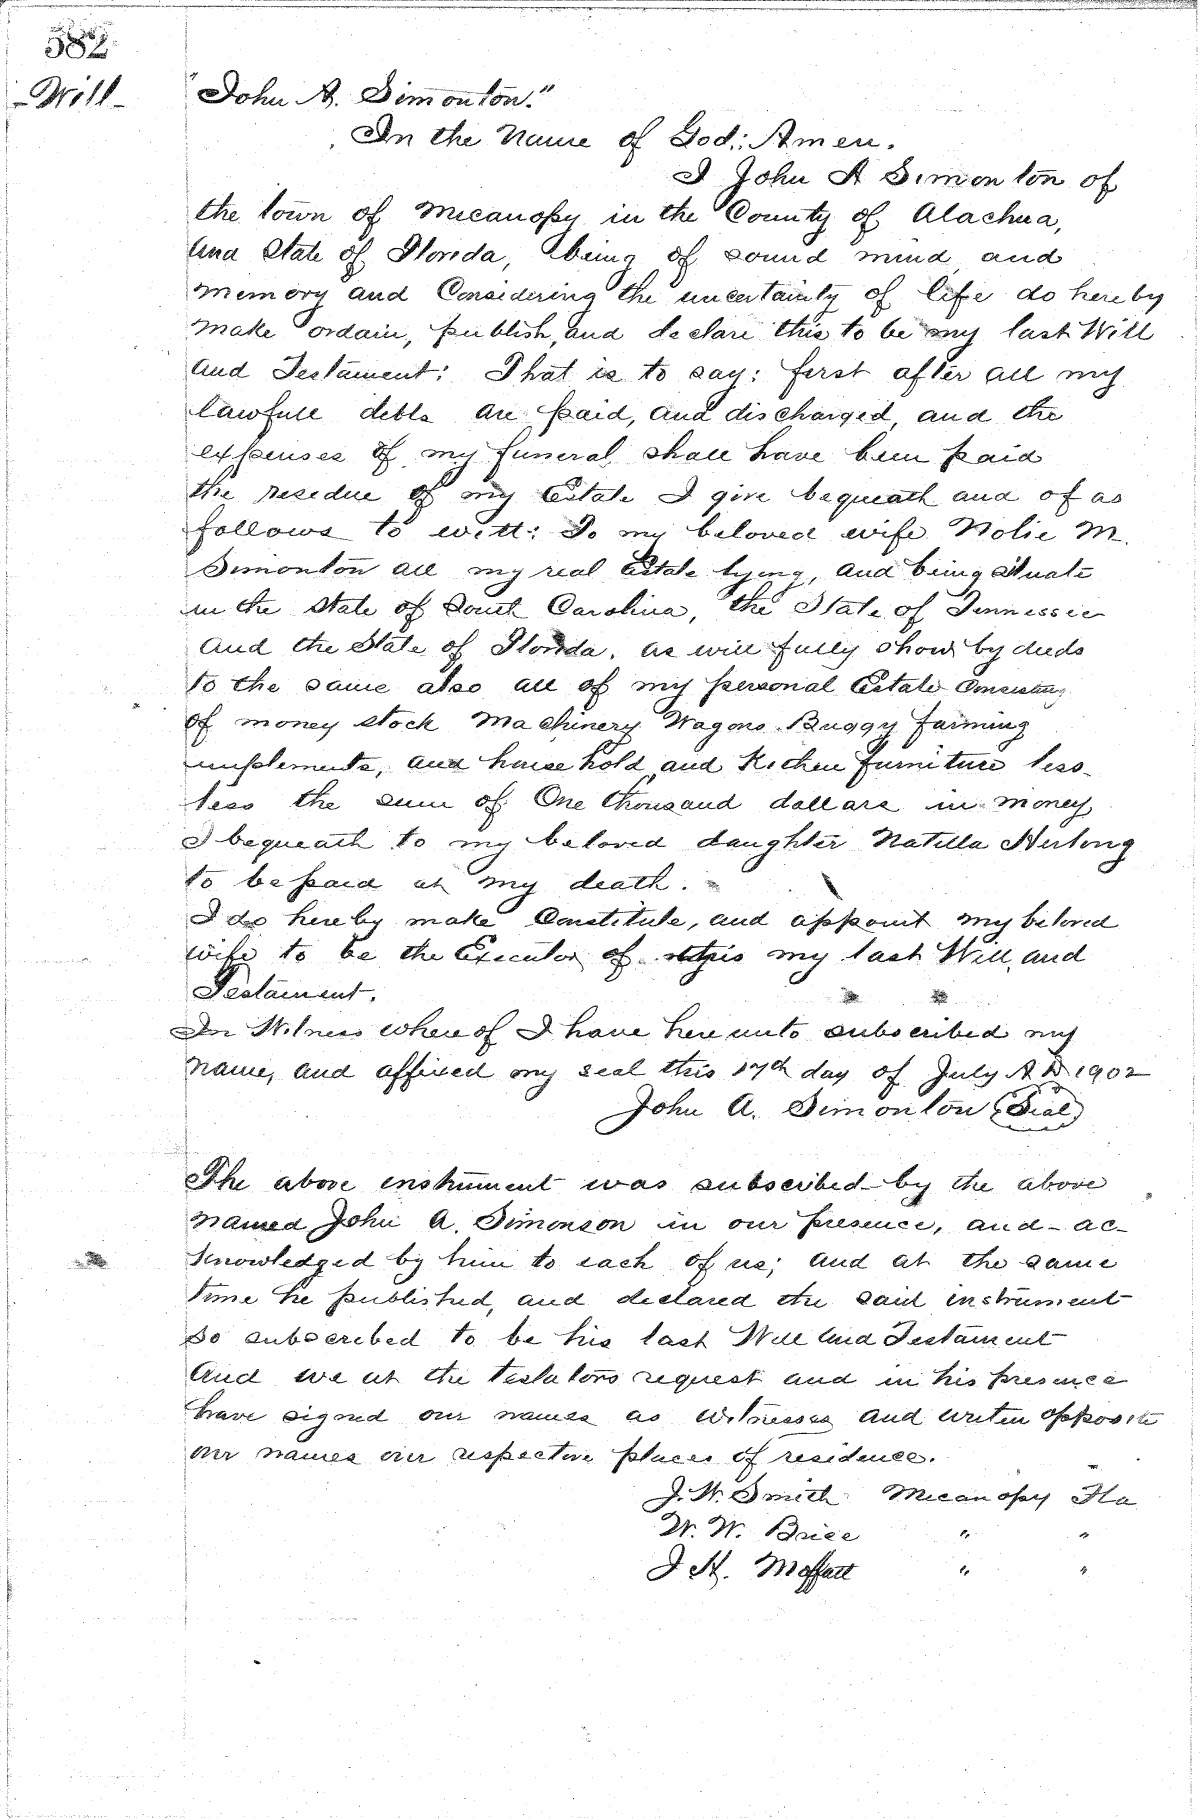 582
- Will -
"John A. Simonton."
In the Name of God; Amen.
I John A Simonton of
the town of Micanopy in the County of Alachua,
and State of Florida, being of sound mind, and
memory and Considering the uncertainty of life do hereby
make ordain, publish, and declare this to be my last Will
and Testament: That is to say: first after all my
lawfull debts are paid, and discharged, and the
expenses of my funeral shall have been paid
the residue of my Estate I give bequeath and of as
follows to witt: To my beloved wife Nolie M.
Simonton all my real Estate lying, and being situate
in the State of South Carolina, the State of Tennessee
and the State of Florida. as will fully show by deeds
to the same also all of my personal Estate Consisting
of money stock Machinery Wagons Buggy farming
implements, and house hold, and Kichen furniture less
less the sum of One thousand dollars in money
I bequeath to my beloved daughter Natilla Herlong
to be paid at my death.
I do hereby make Constitute, and appoint my beloved
wife to be the Executor of this my last Will, and
Testament.
In Witness where of I have here unto subscribed my
name, and affixed my seal this 17th day of July A D 1902
John A. Simonton (Seal)
The above instrument was subscribed by the above
named John A. Simonson in our presence, and ac-
knowledged by him to each of us; and at the same
time he published, and declared the said instrument
so subscribed to be his last Will and Testament
And we at the testators request and in his presence
have signed our names as witnesses and writen opposite
our names our respective places of residence.
J. W. Smith Micanopy Fla
W. W. Brice " "
J H. Moffatt " "